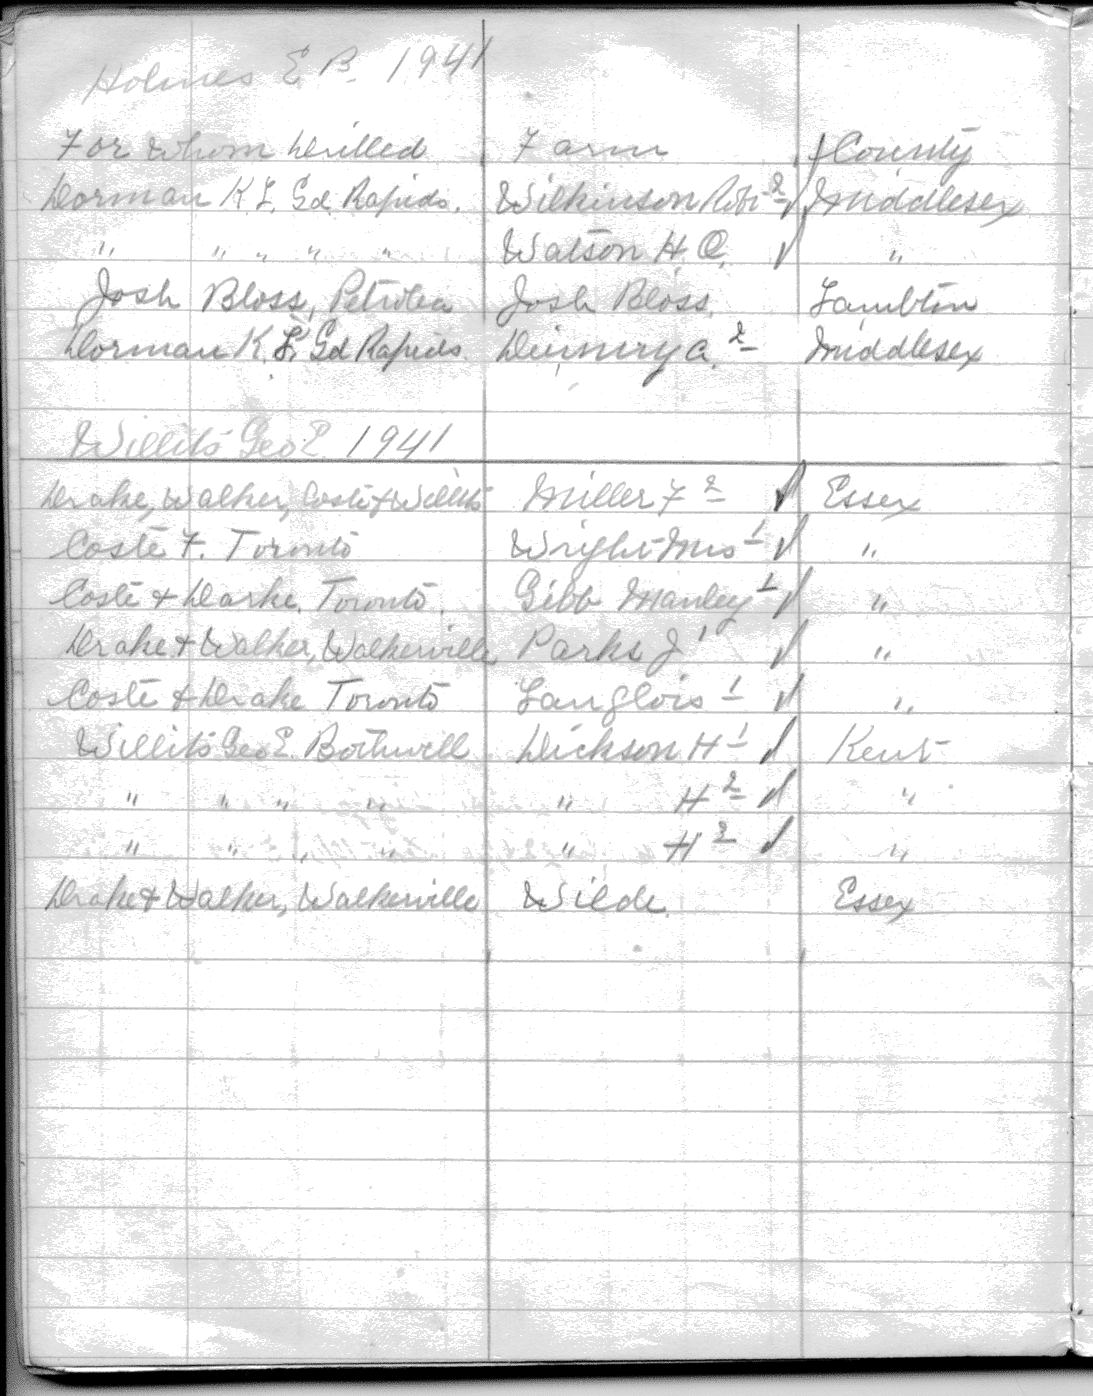 Holmes E. B. 1941
For whom Drilled Farm County
Dorman K. L. Gd Rapids. Wilkinson Robt 2 ✓ Middlesex
" " " " " Watson H. O. ✓ "
Josh Bloss, Petrolea Josh Bloss. Lambton
Dorman K. L. Gd Rapids. A. 2 Middlesex
Willits Geo E. 1941
Drake, Walker, Coste & Willits Miller F 2 ✓ Essex
Coste F. Toronto Wright Mrs 1 ✓ "
Coste & Darke, Toronto. Gibb Manley 1 ✓ "
Drake & Walker, Walkerville Parks J 1 ✓ "
Coste & Drake Toronto Langlois 1 ✓ "
Willits Geo E. Bothwell Dickson H 1 ✓ Kent
" " " " " H 2 ✓ "
" " " " " H 3 ✓ "
Drake & Walker, Walkerville Wilde. Essex